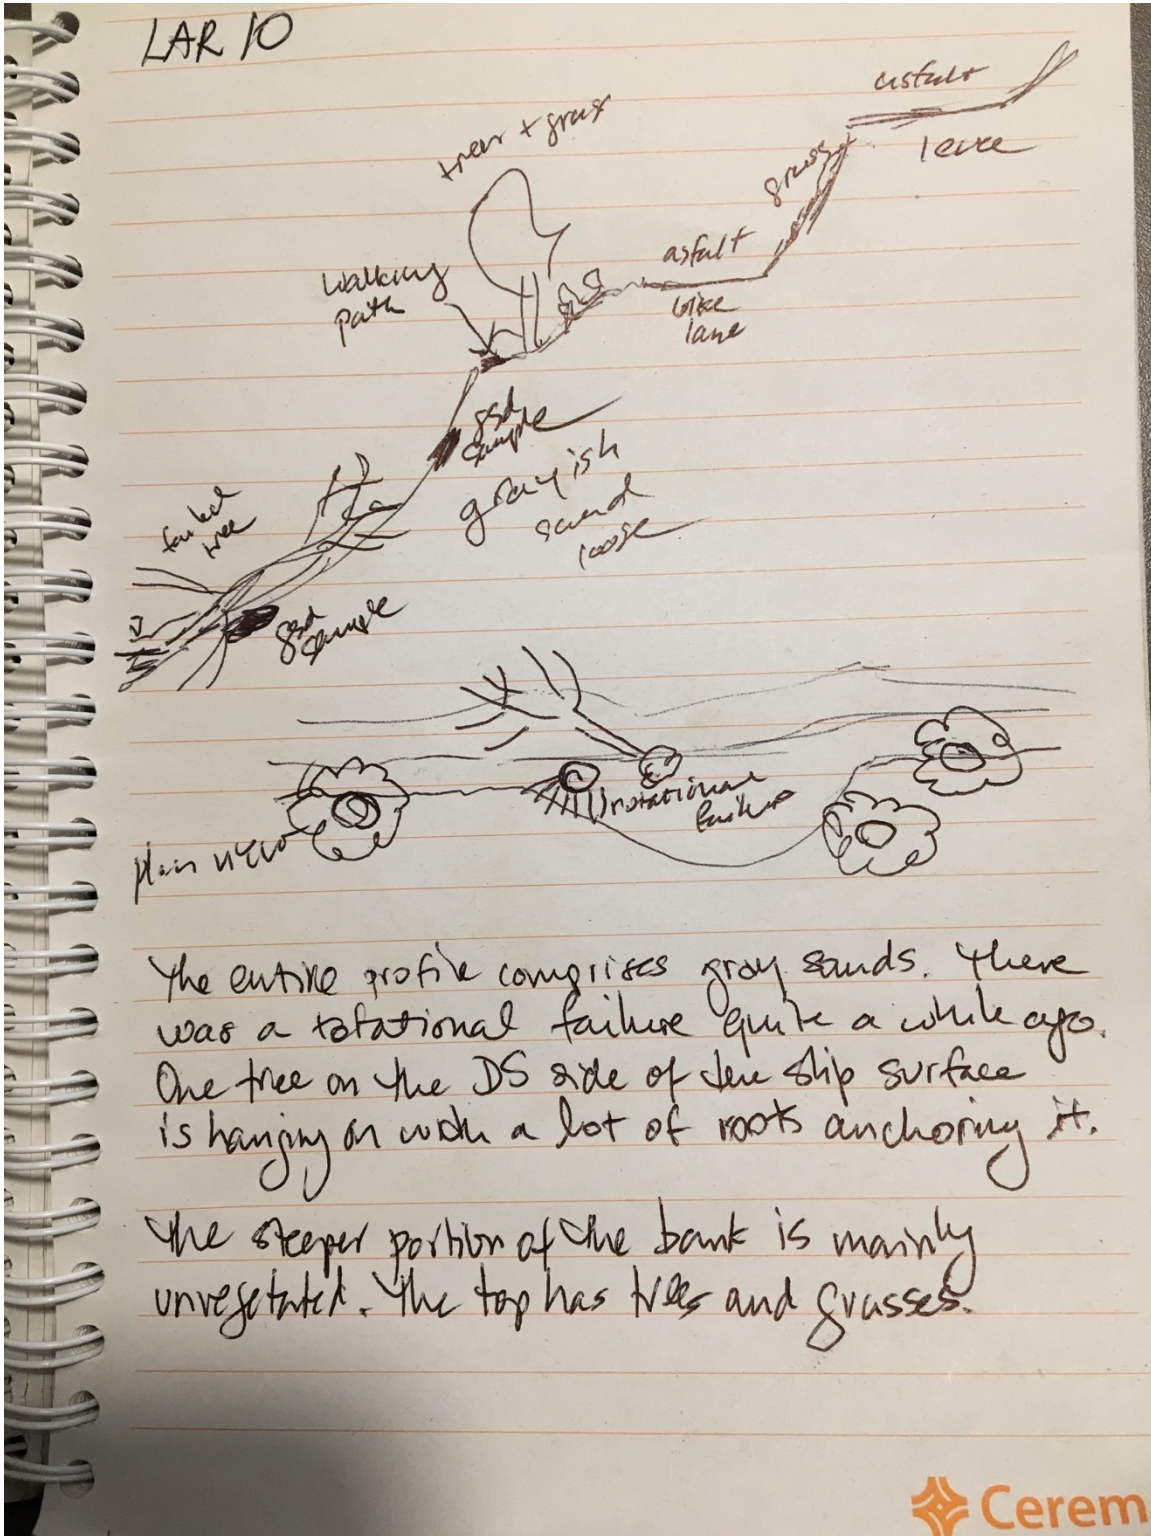 LAR 10
asfalt
levee
trees + grass
grass
asfalt
bike
lane
walking
path
gsd
sample
grayish
sand
loose
failed
tree
gsd
sample
rotational
failure
plan view
The entire profile comprises gray sands. There
was a rotational failure quite a while ago.
One tree on the DS side of the slip surface
is hanging on with a lot of roots anchoring it.
The steeper portion of the bank is mainly
unvegetated. The top has trees and grasses.
Cerem